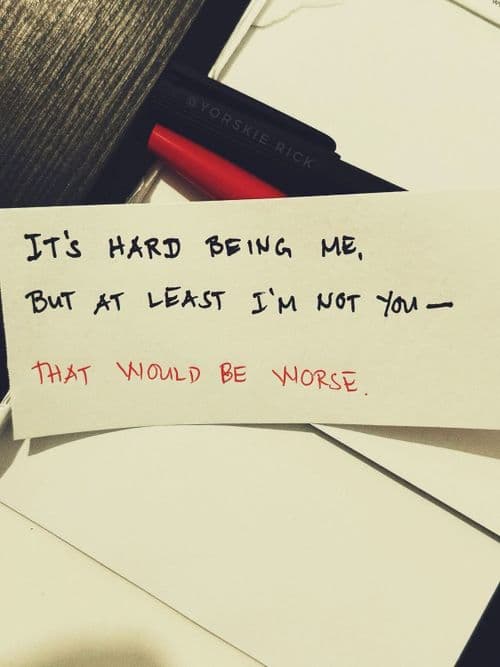 @YORSKIE RICK
IT'S HARD BEING ME,
BUT AT LEAST I'M NOT YOU—
THAT WOULD BE WORSE.